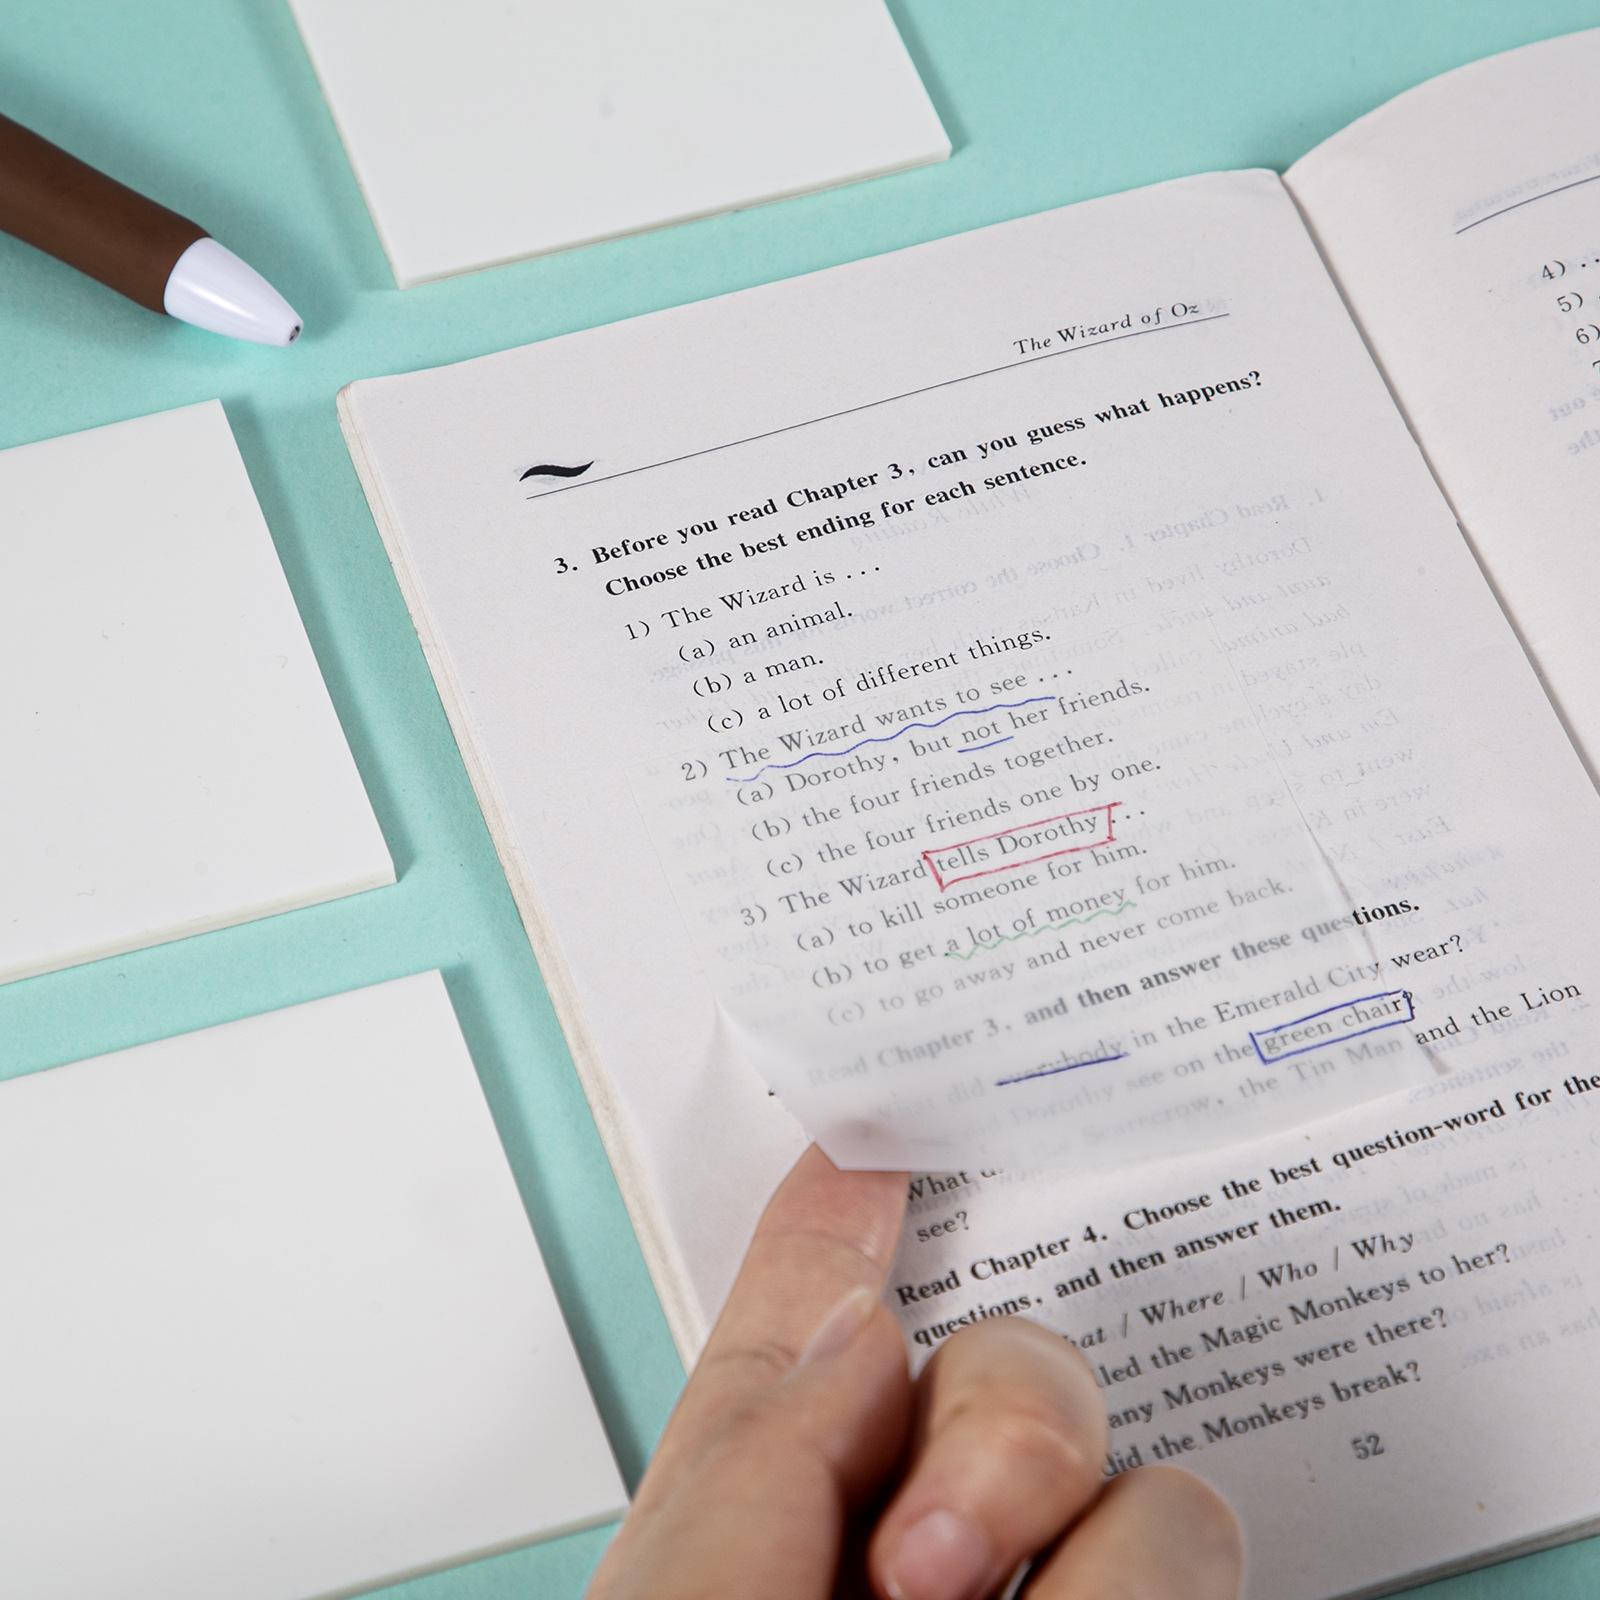 The Wizard of Oz
3. Before you read Chapter 3, can you guess what happens?
Choose the best ending for each sentence.
1) The Wizard is ...
(a) an animal.
(b) a man.
(c) a lot of different things.
2) The Wizard wants to see ...
(a) Dorothy, but not her friends.
(b) the four friends together.
(c) the four friends one by one.
3) The Wizard tells Dorothy ...
(a) to kill someone for him.
(b) to get a lot of money for him.
(c) to go away and never come back.
Read Chapter 3, and then answer these questions.
What did everybody in the Emerald City wear?
Dorothy see on the green chair?
Scarecrow, the Tin Man and the Lion
What
see?
Read Chapter 4. Choose the best question-word for the
questions, and then answer them.
/ Where / Who / Why
the Magic Monkeys to her?
any Monkeys were there?
did the Monkeys break?
52
4)
5)
6)